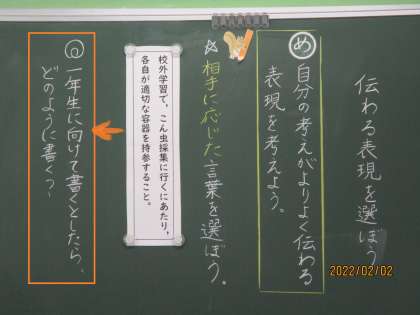 伝わる表現を選ぼう
め 自分の考えがよりよく伝わる
表現を考えよう。
☆相手に応じた言葉を選ぼう。
校外学習で、こん虫採集に行くにあたり、
各自が適切な容器を持参すること。
一年生に向けて書くとしたら、
どのように書く?
2022/02/02